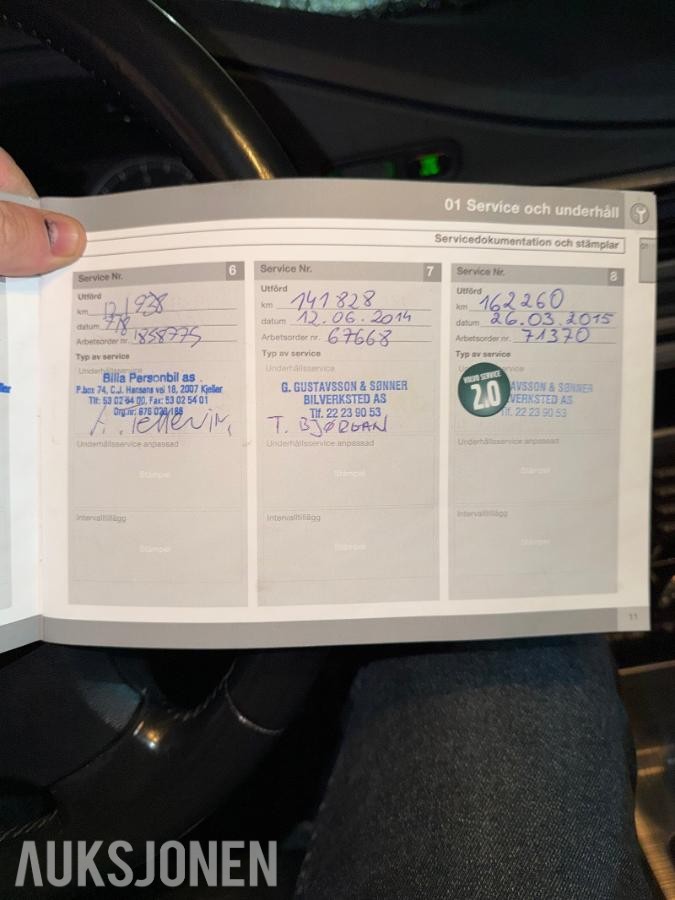 01 Service och underhåll
Servicedokumentation och stämplar
01
Service Nr. 6
Utförd
km 121938
datum 7/8
Arbetsorder nr. 1358775
Typ av service
Underhållsservice
Billa Personbil as
P.box 74, C.J. Hansens vei 18, 2007 Kjeller
Tlf: 53 02 54 00, Fax: 53 02 54 01
Org.nr: 976 028 188
Underhållsservice anpassad
Stämpel
Intervalltillägg
Stämpel
Service Nr. 7
Utförd
km 141828
datum 12.06.2014
Arbetsorder nr. 67668
Typ av service
Underhållsservice
G. GUSTAVSSON & SØNNER
BILVERKSTED AS
Tlf. 22 23 90 53
T. BJØRGAN
Underhållsservice anpassad
Stämpel
Intervalltillägg
Stämpel
Service Nr. 8
Utförd
km 162260
datum 26.03.2015
Arbetsorder nr. 71370
Typ av service
VOLVO SERVICE
2.0
AVSSON & SØNNER
VERKSTED AS
Tlf. 22 23 90 53
Underhållsservice anpassad
Stämpel
Intervalltillägg
Stämpel
11
AUKSJONEN